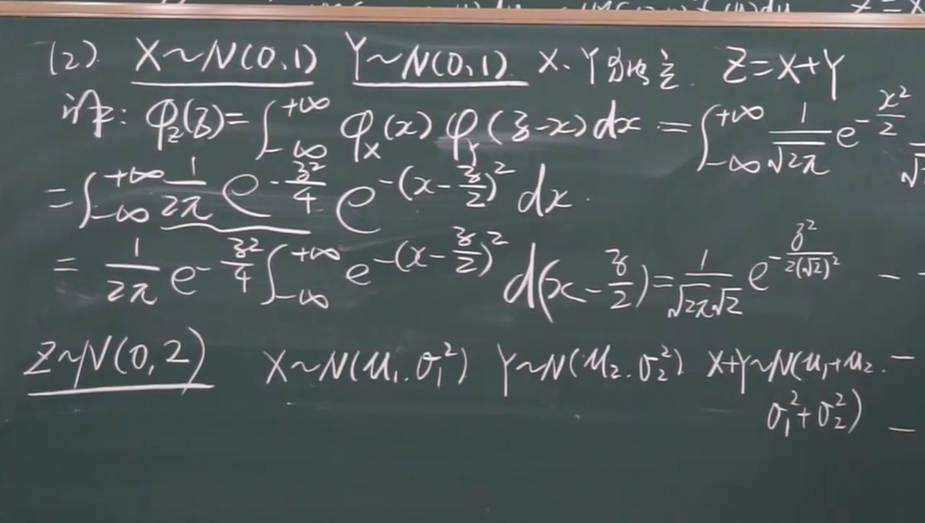 (2). X~N(0,1) Y~N(0,1) X、Y独立. Z=X+Y
φ_Z(z)=∫_{-∞}^{+∞} φ_X(x) φ_Y(z-x)dx = ∫_{-∞}^{+∞} 1/√2π e^{-x²/2}
=∫_{-∞}^{+∞} 1/2π e^{-z²/4} e^{-(x-z/2)²} dx.
= 1/2π e^{-z²/4} ∫_{-∞}^{+∞} e^{-(x-z/2)²} d(x-z/2) = 1/√2π√2 e^{-z²/2(√2)²}
Z~N(0,2) X~N(μ₁.σ₁²) Y~N(μ₂.σ₂²) X+Y~N(μ₁+μ₂.
σ₁²+σ₂²)